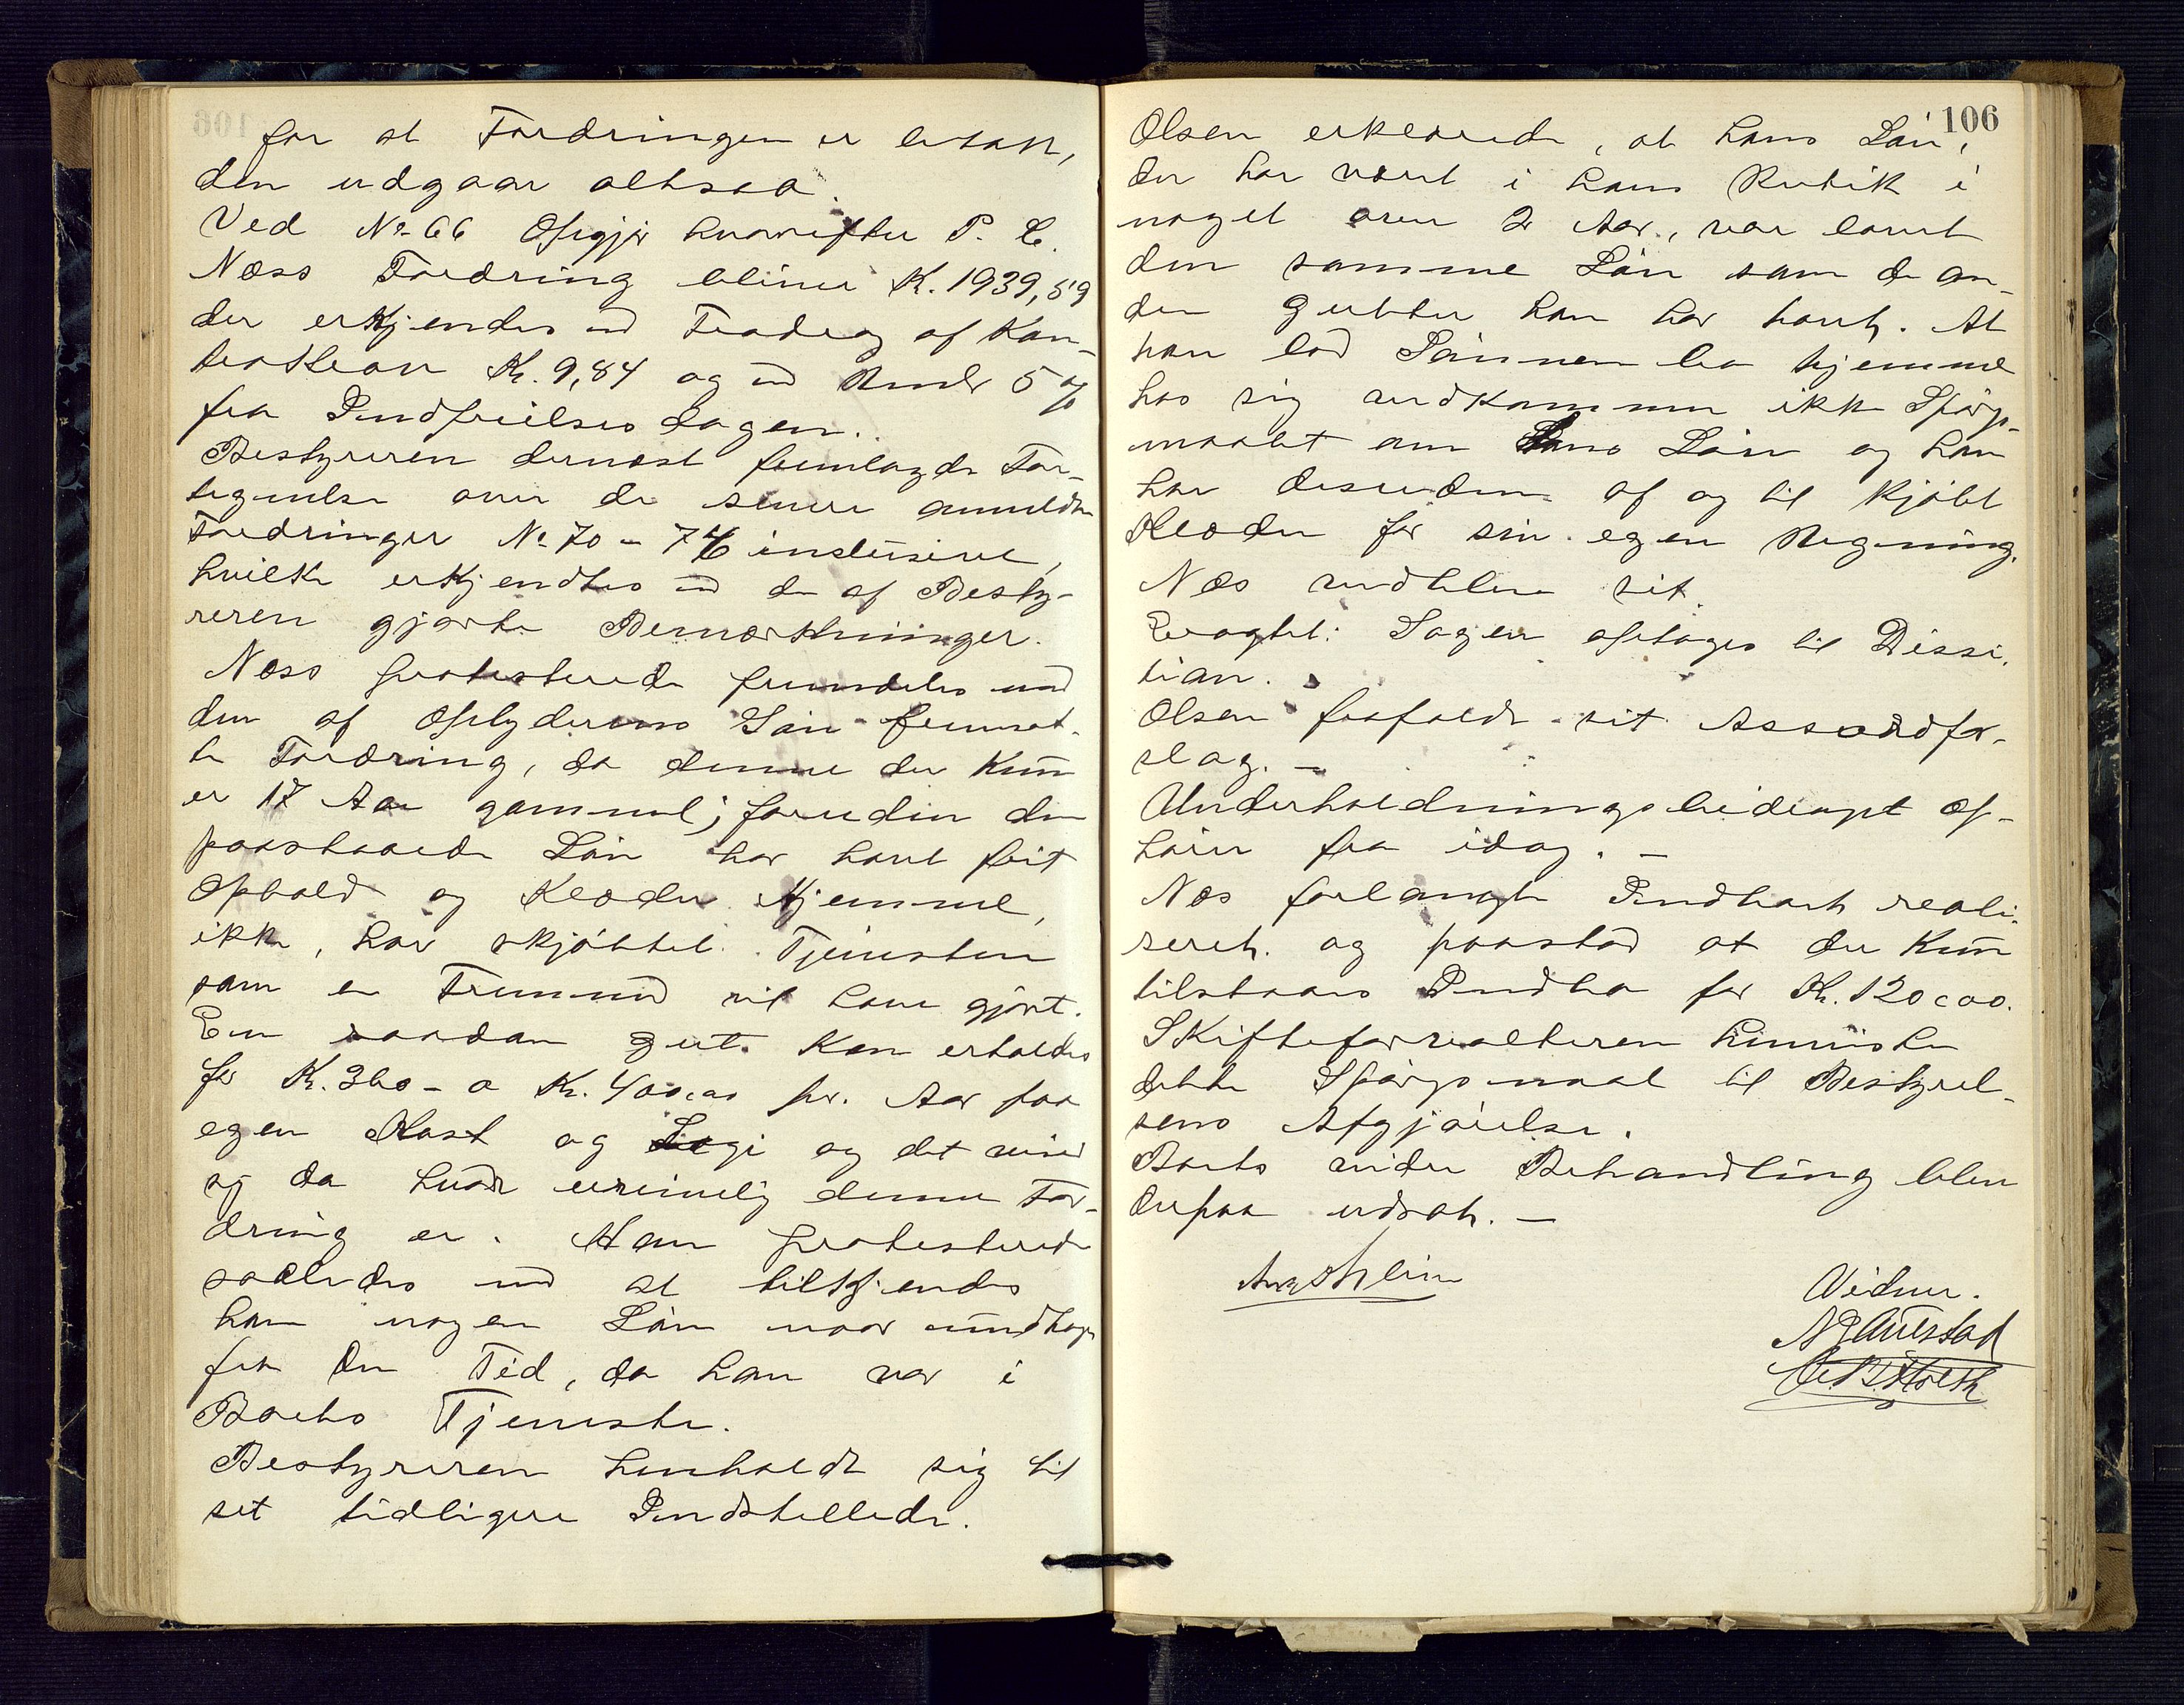 for at Fordringen er betalt,
den udgaar altsaa.
Ved No 66 Opgjør hvorefter P. C.
Næss Fordring bliver K. 1939,59
der erkjendes med Fradrag af Kon-
traskran K. 9,84 og med Rente 5 %
fra Indfrielsesdagen.
Bestyreren dernæst fremlagde For-
tegnelse over de senere anmeldte
Fordringer No 70 - 76 inclusive,
hvilke erkjendtes med de af Besty-
reren gjorte Bemærkninger.
Næss protesterede fremdeles mod
den af Opbyderens Søn fremsat-
te Fordring, da denne der kun
er 17 Aar gammel; foruden den
paastaaede Løn har havt frit
Ophold og Klæder hjemme,
ikke har skjøttet Tjenesten
som en Fremmed vil have gjort.
En saadan Gut kan erholdes
for K. 360 - a K. 400,00 pr. Aar paa
egen Kost og Logi og det viser
sig da hvor urimelig denne For-
dring er. Han protesterede
saaledes mod at tilkjendes
ham nogen Løn naar undtages
fra den Tid, da han var i
Boets Tjeneste.
Bestyreren henholdt sig til
sit tidligere Indstillede.
106
Olsen erklærede, at hans Søn,
der har været i hans Butik i
noget over 2 Aar, var lovet
den samme Løn som de an-
dre Gutter han har havt. At
han lod Sønnen bo hjemme
hos sig vedkommer ikke Spørgs-
maalet om hans Løn og han
har desuden af og til kjøbt
Klæder for sin egen Regning.
Næs vedblev sit.
Eragtet: Sagen optages til Desci-
tion.
Olsen frafaldt sit Accordfor-
slag. —
Underholdningsbidraget op-
hører fra idag. —
Næs forlangte Indboet reali-
seret og paastod at der kun
tilstaaes Indbo for K. 120,00.
Skifteforvalteren henviste
dette Spørgsmaal til Bestyrel-
sens Afgjørelse.
Boets videre Behandling blev
derpaa udsat. —
Vidner.